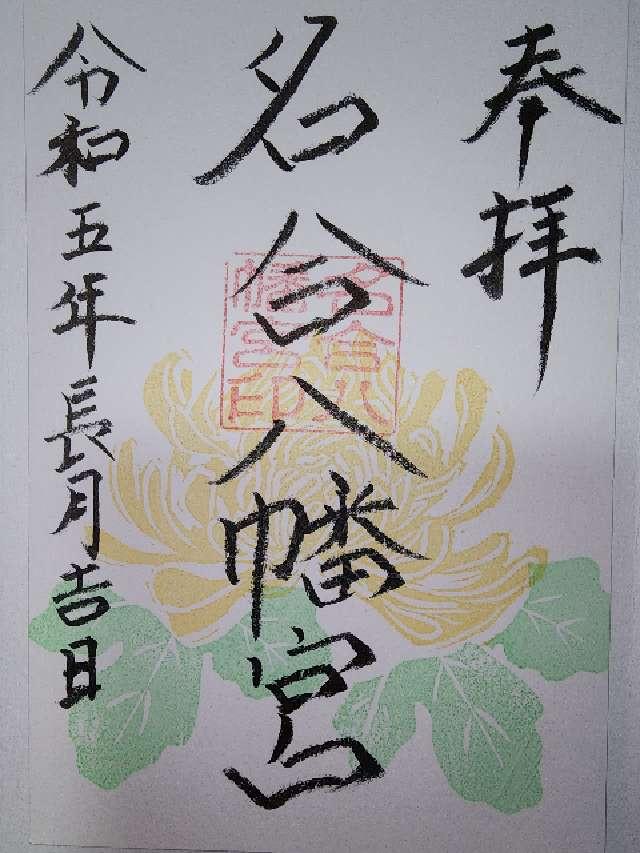 奉拝
名合八幡宮
名合八
幡宮印
令和五年長月吉日